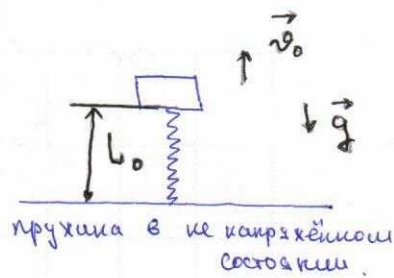 v⃗₀
g⃗
L₀
пружина в не напряжённом
состоянии.